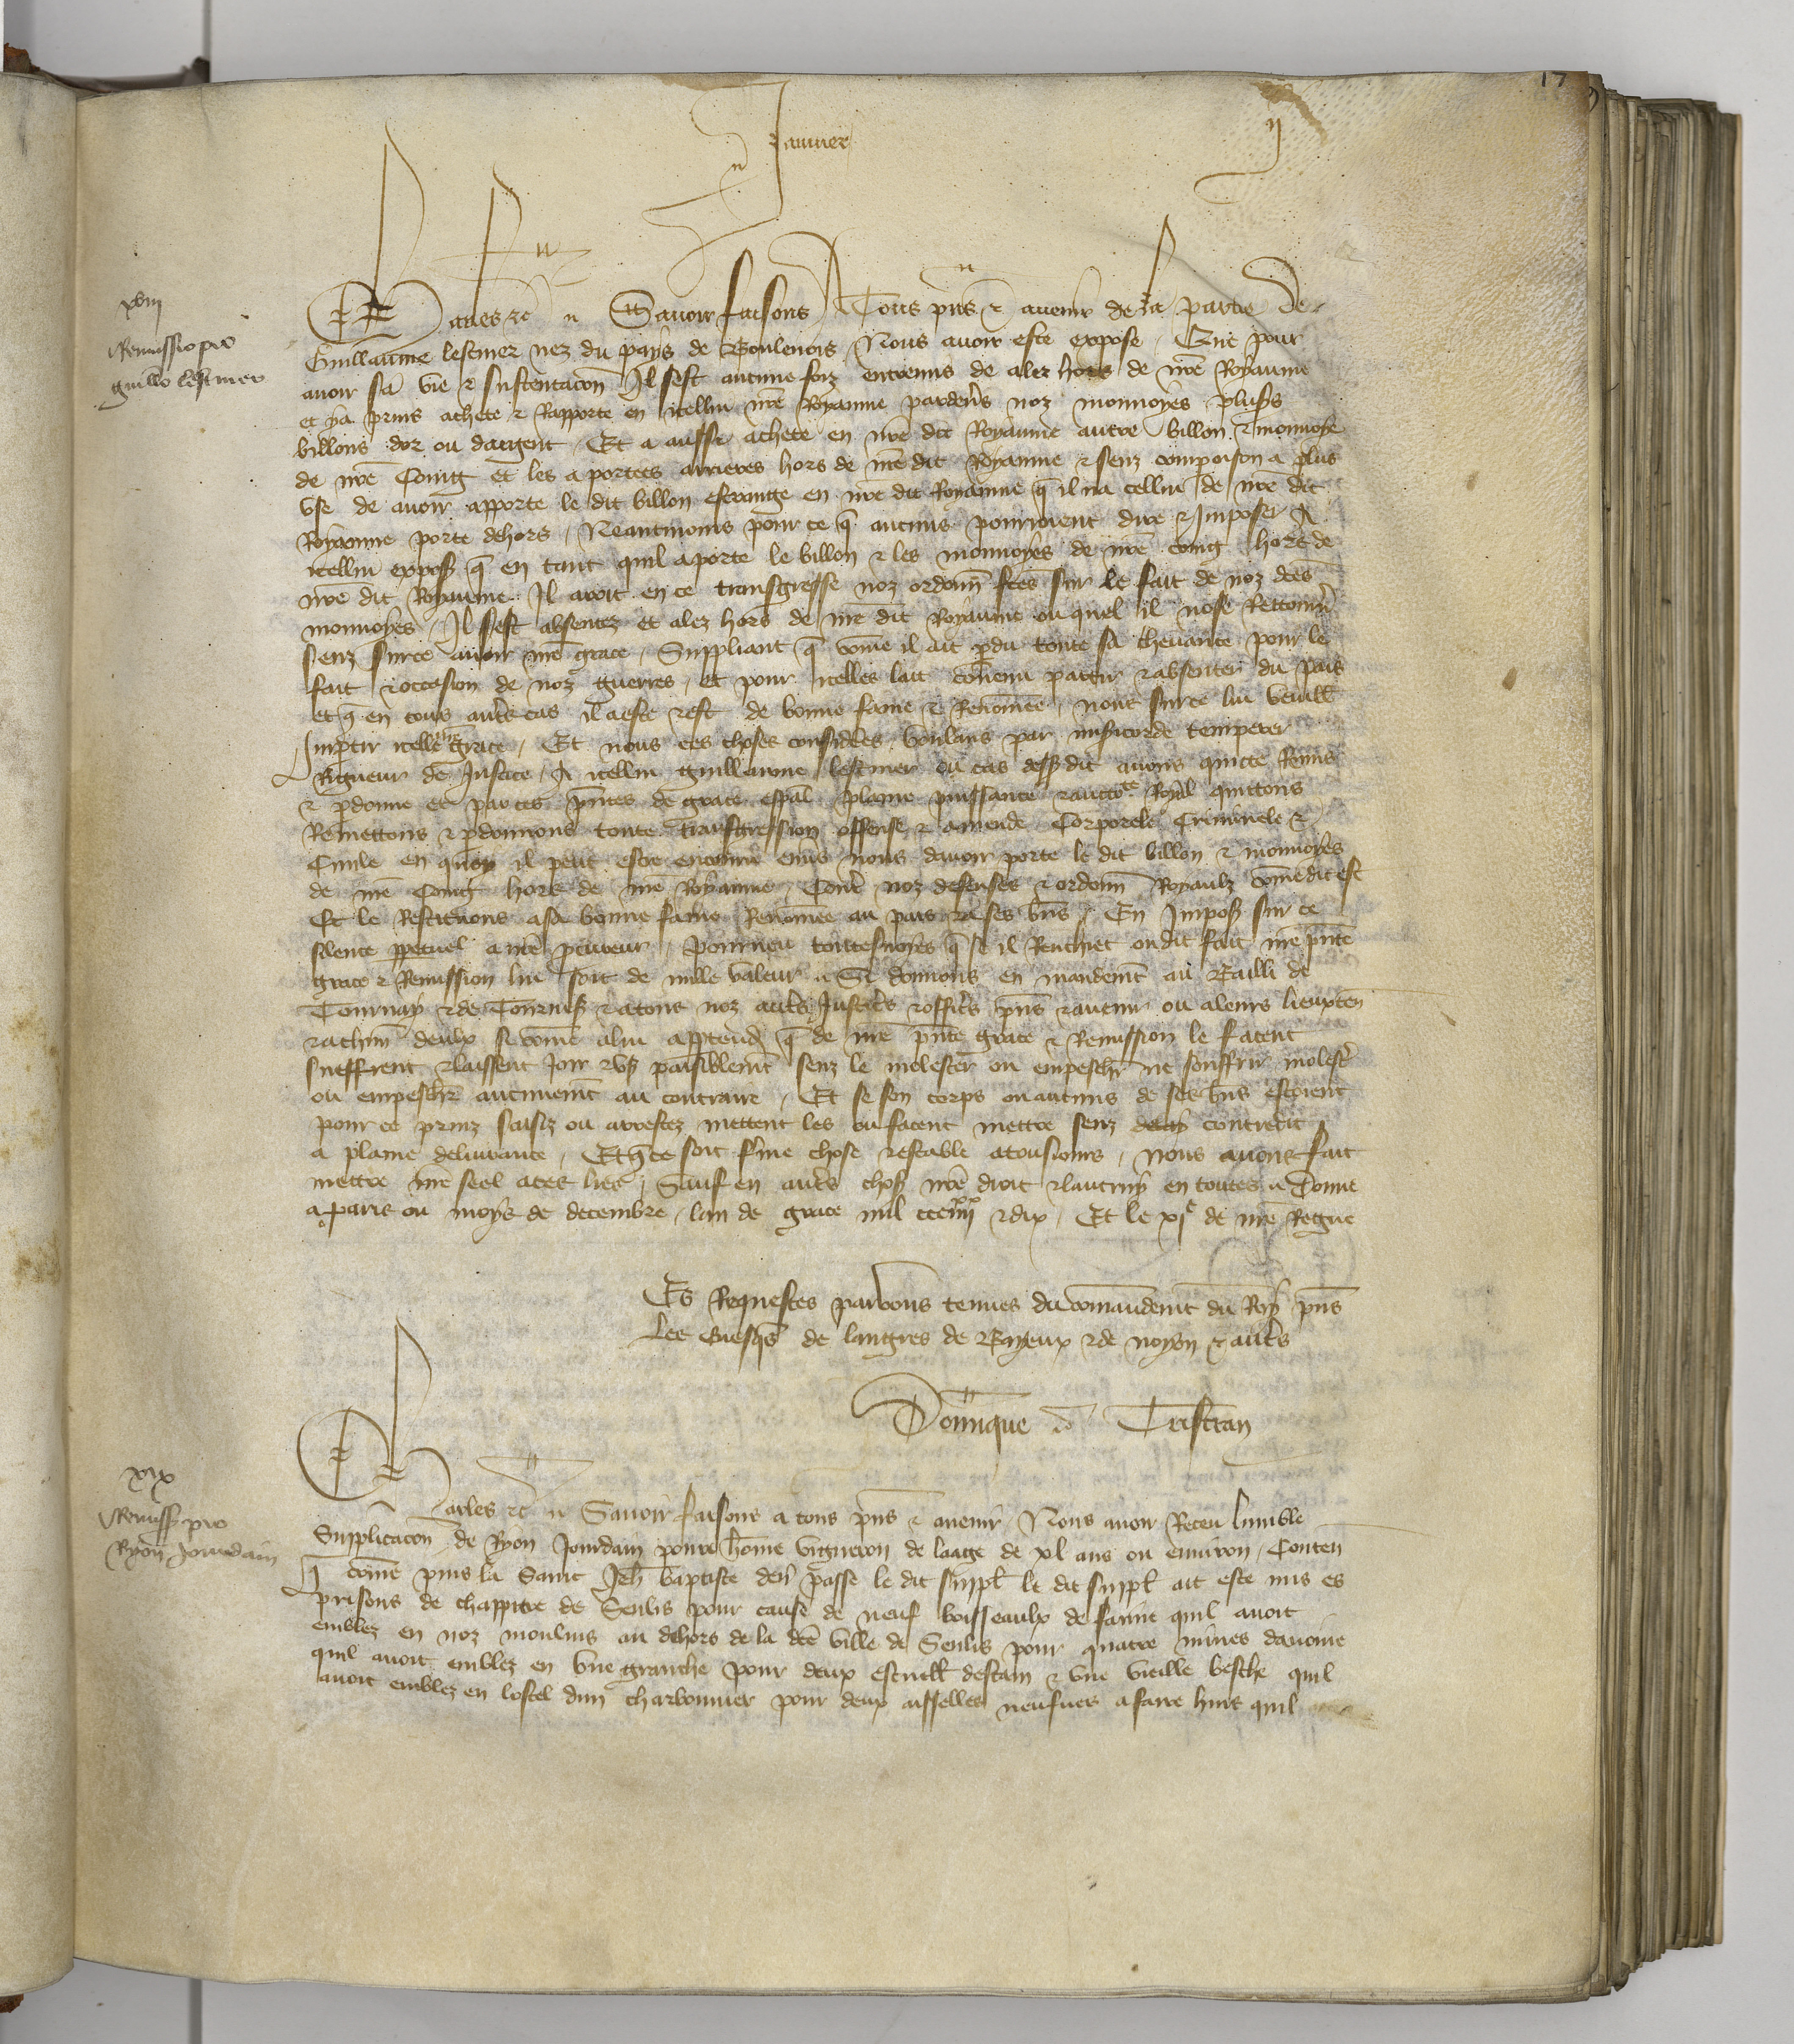 17
Januier
xviii
Remissio pro
guillo lestmer
Charles etc Savoir faisons A Tous pns & avenir de la partie de
Guillaume lestmer nez du pays de Boulenois Nous avoir este expose Que pour
avoir sa vie & sustentacon Il sest aucune foiz entremis de aler hors de nre Royaume
et ya prins achete & Rapporte en icellui nre Royaume pardevs noz monnoyes plus
billons dor ou dargent Et a aussi achete en nre dit Royaume autre billon & monnoye
de nre Coing et les a portees arrieres hors de nre dit Royaume & senz compoison a plus
use de avoir apporte le dit billon estrange en nre dit Royaume q il na cellui de nre dit
Royaume porte dehors Neantmoins pour ce q aucuns pourroient dire & Imposer A
icellui expos q en tant quil a porte le billon & les monnoyes de nre coing hors de
nre dit Royaume Il avoit en ce transgresse noz ordonn fces sur le fait de noz dces
monnoyes Il sest absentez et alez hors de nre dit Royaume ou quel il nose Rettourn
senz surce avoir nre grace Suppliant q come il ait pdu toute sa chevance pour le
fait & occasion de noz guerres et pour icelles lait convenu partir & absenter du pais
et q en tous auts cas il a este & est de bonne fame & Renomee nous surce lui veuill
Imptir icelle nre grace Et nous ces choses considerees voulans par misicorde temperer
Rigueur de Justice A icellui guillaume lestmer ou cas dessus dit avons quicte Remis
& pdonne et par ces pntes de grace espal plaine puissance & auctote Royal quittons
Remettons & pdonnons toute transgression offense & amende Corporele Criminele &
Civile en quoy il peut estre encouru envs nous davoir porte le dit billon & monnoyes
de nre Coing hors de nre Royaume Contre noz defenses & ordonn Royaulx come dit est
Et le Restituons a sa bonne fame Renomee au pais & a ses bns En Impos sur ce
silence ppetuel a nre pcureur pourveu toutesvoyes q se il Renchiet ou dit fait nre pnte
grace & Remission lui soit de nulle valeur Si donnons en mandemt au Bailli de
Tournay & de Tournes & a tous noz auts Justicrs & officrs pns & avenir ou a leurs lieuxten
& a chun deulx si come a lui apptendr q de nre pnte grace & Remission le facent
sueffrent & laissent Joir & us paisiblemt senz le molester ou empeschr ne souffrir molestr
ou empeschr aucunemt au contraire Et se son corps ou aucuns de ses bns estoient
pour ce prinz saisiz ou arrestez mettent les ou facent mettre senz delay contredit
a plaine delivrance Et q ce soit ferme chose & estable a tousiours Nous avons fait
mettre nre seel a ces lres Sauf en auts chos nre droit & lautruy en toutes Donne
a Paris ou moys de decembre lan de grace mil ccc iiiixx & dix Et le xie de nre Regne
Es Requestes par vous tenues du comandemt du Roy pns
Les Evesqs de langres de Bayeux & de noyon & auts
Dominique Tristran
xix
Remiss pro
Ryon Jourdain
Charles etc Savoir faisons a tous pns & avenir Nous avoir Receu lumble
Supplicacon de Ryon Jourdain povre home vigneron de laage de xl ans ou environ Conten
q come puis la Saint Jeh baptiste derr passe le dit suppl le dit suppl ait este mis es
prisons de chappitre de Senlis pour cause de neuf boisseaulx de farine quil avoit
emblez en noz moulins au dehors de la dce ville de Senlis pour quatre mines davoine
quil avoit emblez en une granche pour deux escuell destain & une vieille besche quil
avoit emblez en lostel dun charbonnier pour deux aisselles neufves a faire huis quil